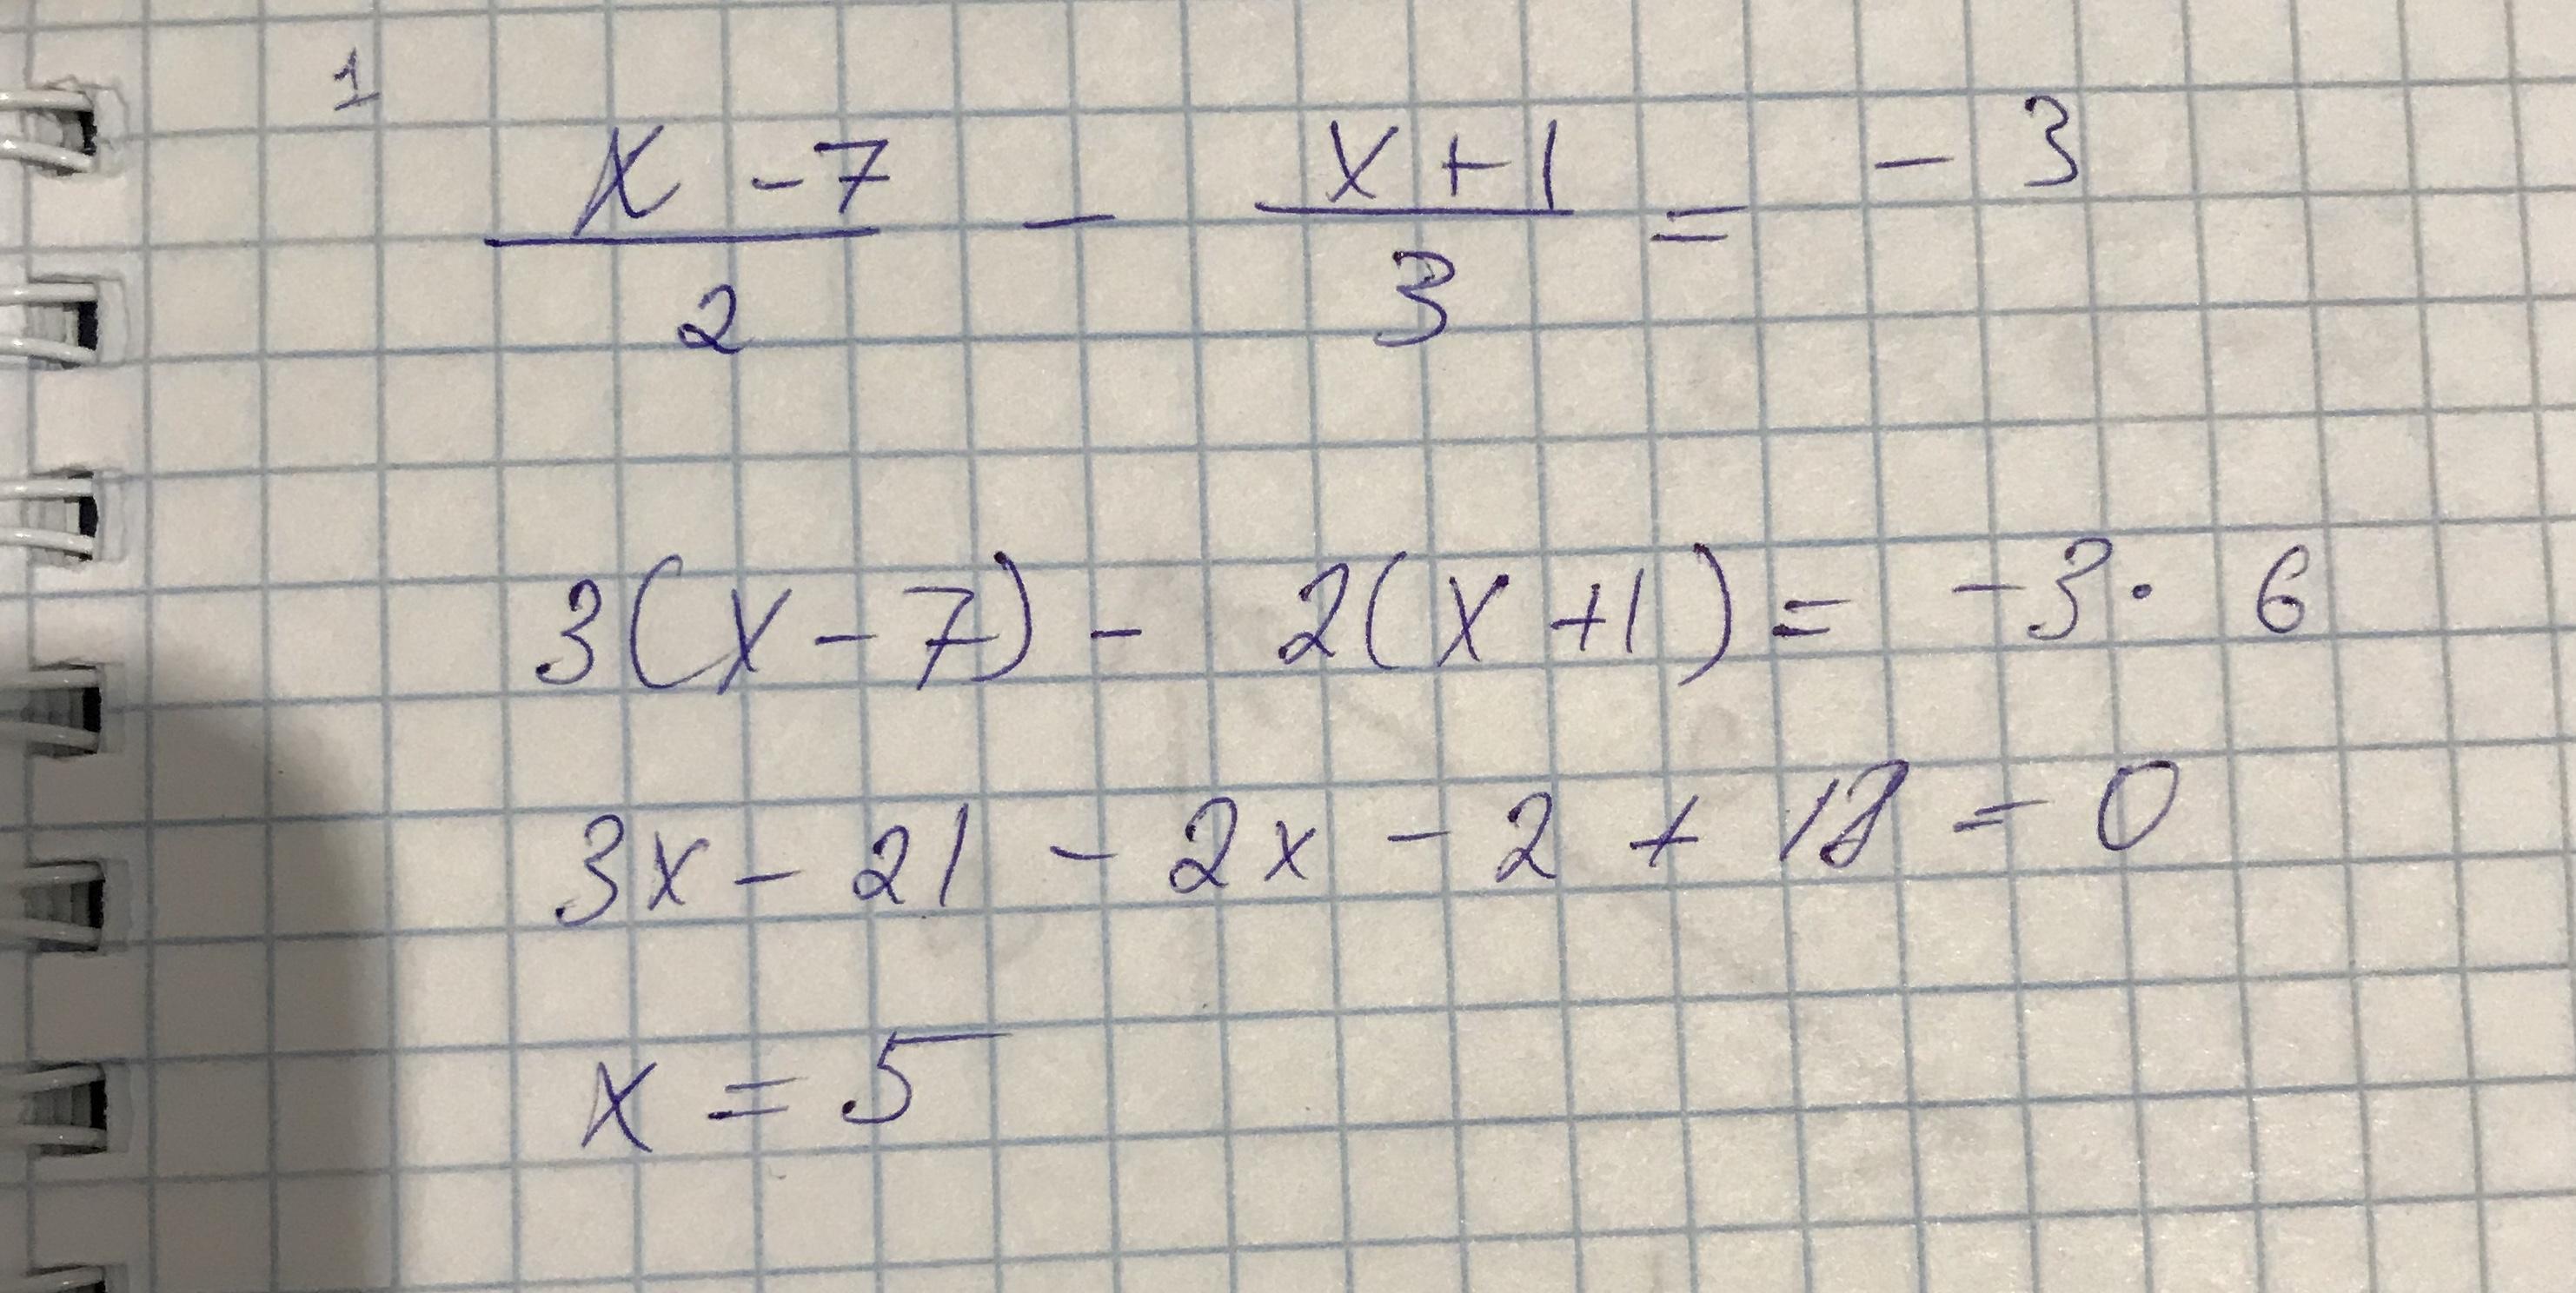 1
x - 7 / 2 - x + 1 / 3 = - 3
3(x - 7) - 2(x + 1) = - 3 · 6
3x - 21 - 2x - 2 + 18 = 0
x = 5